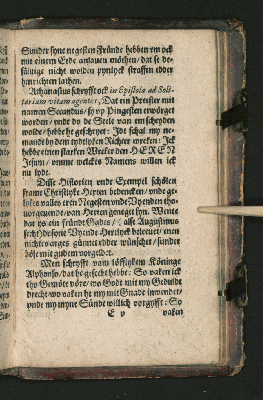 Sünder syne negesten Fründe hebben en ock
mit einem Erde antasten möchen / dat se de-
sülvige nicht wolden pynlyck straffen edder
hinrichten lathen.
Athanasius schryfft ock in Epistola ad Soli-
tariam vitam agentes, Dat ein Preester mit
namen Secundus / sy vp Pingesten ermördet
worden / vnde do de Seele van em scheyden
wolde / hebbe he geschryet: Jdt schal my ne-
mandt by dem rydtlyken Richter wreken: Jck
hebbe einen starken Wreker den HEREN
Jesum / vmme welckes Namens willen ick
nu lyde.
Disse Historien vnde Exempel schölen
frame Christlyke Herten bedencken / vnde ge-
lykes valles eren Negesten vnde Vyenden tho-
vorgevende / van Herten geneget syn. Wente
dat ys ein fründt Gades / (alse Augustinus
secht) de syne Vyende Hertlyck belevet / men
nichtes arges günnet edder wünschet / sunder
böse mit gudem vorgeldet.
Men schryfft vam löfflyken Köninge
Alphonso / dat he gesecht hebbe: So vaken ick
tho Gemöte vöre / wo Godt mit my Gedulde
drecht / wo vaken he my mit Gnade inwendet /
vnde my myne Sünde willich vorgyfft: So
E v vaken